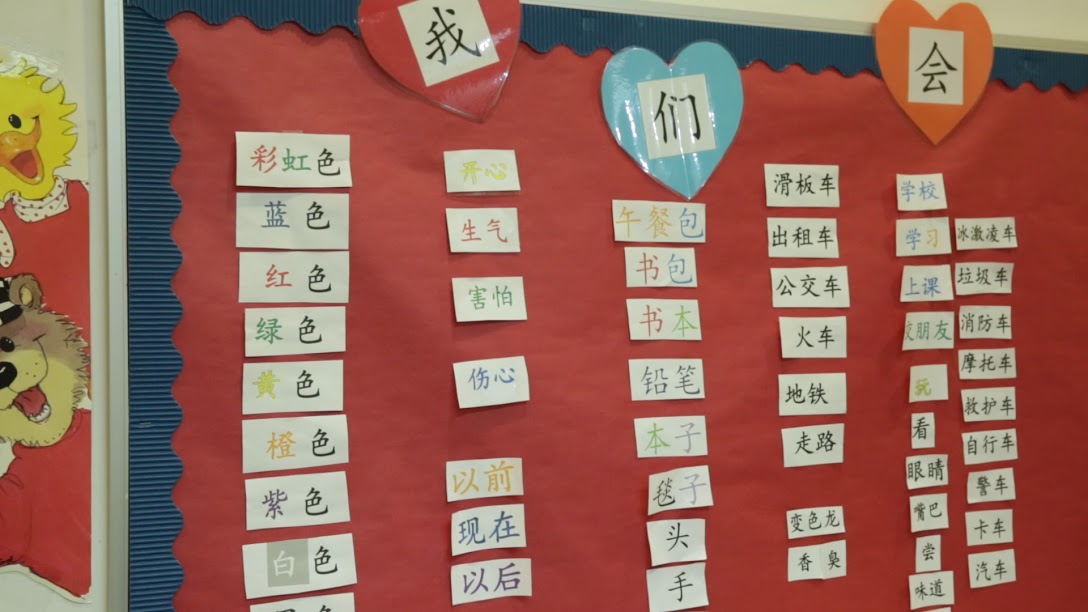 我
们
会
彩虹色
蓝色
红色
绿色
黄色
橙色
紫色
白色
开心
生气
害怕
伤心
以前
现在
以后
午餐包
书包
书本
铅笔
本子
毯子
头
手
滑板车
出租车
公交车
火车
地铁
走路
变色龙
香臭
学校
学习
上课
交朋友
玩
看
眼睛
嘴巴
尝
味道
冰激凌车
垃圾车
消防车
摩托车
救护车
自行车
警车
卡车
汽车